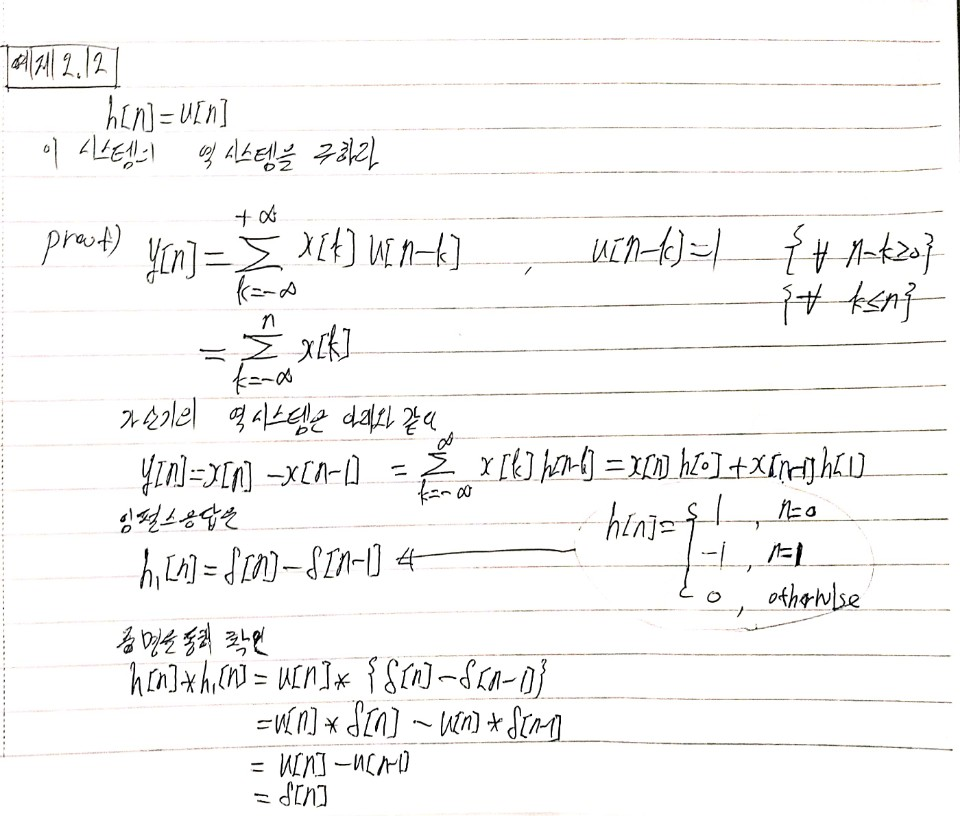 예제 2.12
h[n]=u[n]
이 시스템의 역 시스템을 구하라
proof) y[n] = Σ_{k=-∞}^{+∞} x[k] u[n-k] , u[n-k]=1 {∀ n-k≥0}
{∀ k≤n}
= Σ_{k=-∞}^{n} x[k]
가산기의 역 시스템은 아래와 같다
y[n]=x[n]-x[n-1] = Σ_{k=-∞}^{∞} x[k]h[n-k] = x[n]h[0]+x[n-1]h[1]
임펄스응답은
h[n]={ 1 , n=0
-1 , n=1
0 , otherwise
h₁[n]=δ[n]-δ[n-1] ←
증명을 통해 확인
h[n]*h₁[n] = u[n]* {δ[n]-δ[n-1]}
=u[n]*δ[n] - u[n]*δ[n-1]
= u[n]-u[n-1]
= δ[n]